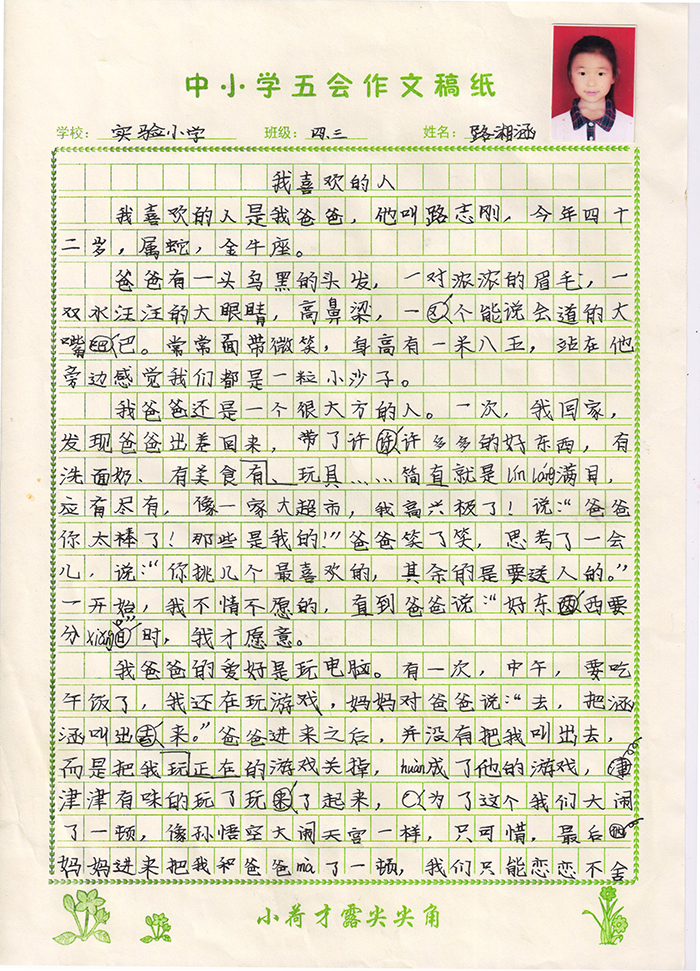 中小学五会作文稿纸
学校： 实验小学 班级： 四三 姓名： 路湘涵
我喜欢的人
我喜欢的人是我爸爸，他叫路志刚，今年四十
二岁，属蛇，金牛座。
爸爸有一头乌黑的头发，一对浓浓的眉毛，一
双水汪汪的大眼睛，高鼻梁，一个能说会道的大
嘴巴。常常面带微笑，身高有一米八五，站在他
旁边感觉我们都是一粒小沙子。
我爸爸还是一个很大方的人。一次，我回家，
发现爸爸出差回来，带了许许多多的好东西，有
洗面奶、有美食有、玩具……简直就是lin lang满目，
应有尽有，像一家大超市，我高兴极了！说：“爸爸
你太棒了！那些是我的！”爸爸笑了笑，思考了一会
儿，说：“你挑几个最喜欢的，其余的是要送人的。”
一开始，我不情不愿的，直到爸爸说：“好东西要
分xiǎng时，我才愿意。
我爸爸的爱好是玩电脑。有一次，中午，要吃
午饭了，我还在玩游戏，妈妈对爸爸说：“去，把涵
涵叫出来。”爸爸进来之后，并没有把我叫出去，
而是把我玩正在的游戏关掉，huàn成了他的游戏，
津津有味的玩了玩了起来，为了这个我们大闹
了一顿，像孙悟空大闹天宫一样，只可惜，最后
妈妈进来把我和爸爸mà了一顿，我们只能恋恋不舍
小荷才露尖尖角